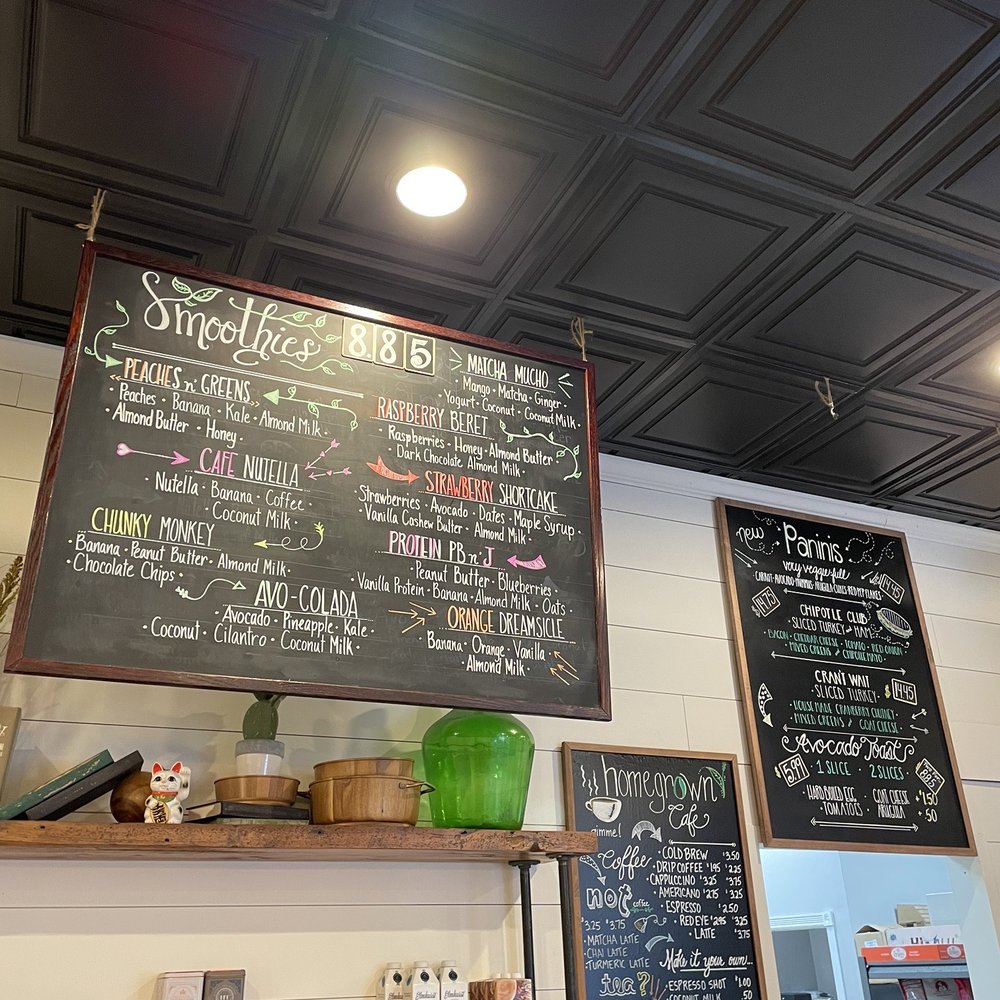 Smoothies 8.85
PEACHES n' GREENS
• Peaches • Banana • Kale • Almond Milk •
Almond Butter • Honey •
CAFE NUTELLA
Nutella • Banana • Coffee •
Coconut Milk •
CHUNKY MONKEY
• Banana • Peanut Butter • Almond Milk •
• Chocolate Chips •
AVO-COLADA
Avocado • Pineapple • Kale •
Coconut • Cilantro • Coconut Milk •
MATCHA MUCHO
Mango • Matcha • Ginger •
Yogurt • Coconut • Coconut Milk •
RASPBERRY BERET
Raspberries • Honey • Almond Butter •
Dark Chocolate Almond Milk •
STRAWBERRY SHORTCAKE
Strawberries • Avocado • Dates • Maple Syrup •
Vanilla Cashew Butter • Almond Milk •
PROTEIN PB n' J
Peanut Butter • Blueberries •
Vanilla Protein • Banana • Almond Milk • Oats •
ORANGE DREAMSICLE
Banana • Orange • Vanilla •
Almond Milk •
new Paninis
very veggie-full
14.45
CHIPOTLE CLUB
$14.75
SLICED TURKEY and HAM
BACON • CHEDDAR CHEESE • TOMATO • RED ONION
MIXED GREENS and CHIPOTLE MAYO
CRAN'T WAIT
SLICED TURKEY
$14.45
HOUSE MADE CRANBERRY CHUTNEY
MIXED GREENS and GOAT CHEESE
Avocado Toast
$5.99 1 SLICE 2 SLICES $8.85
HARD BOILED EGG GOAT CHEESE +1.50
• TOMATOES ARUGULA +.50
homegrown
Cafe
gimme!
Coffee
• COLD BREW $3.50
• DRIP COFFEE $1.95 $2.25
• CAPPUCCINO $3.25 $3.75
• AMERICANO $2.75 $3.25
• ESPRESSO $2.50
• RED EYE $2.95 $3.25
• LATTE $3.75
not coffee
$3.25 $3.75
• MATCHA LATTE
• CHAI LATTE
• TURMERIC LATTE
Make it your own...
• ESPRESSO SHOT $1.00
COCONUT MILK .50
tea?